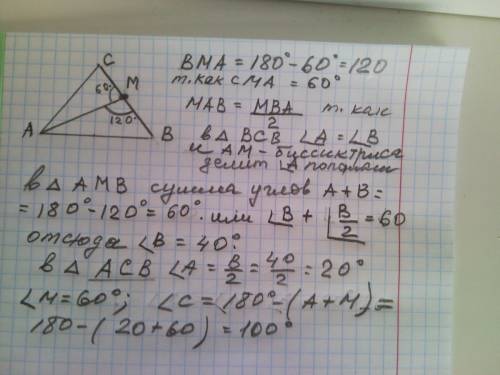 C
M
60°
A
120°
B
BMA = 180° - 60° = 120
т.как CMA = 60°
MAB = MBA/2 т. как
в Δ BCB ∠A = ∠B
и AM - биссиктриса
делит ∠A пополам
в Δ AMB сумма углов A+B=
= 180° - 120° = 60°. или ∠B + ∠B/2 = 60
отсюда ∠B = 40°.
в Δ ACB ∠A = B/2 = 40/2 = 20°
∠M = 60°; ∠C = 180° - (A+M) =
180 - (20+60) = 100°